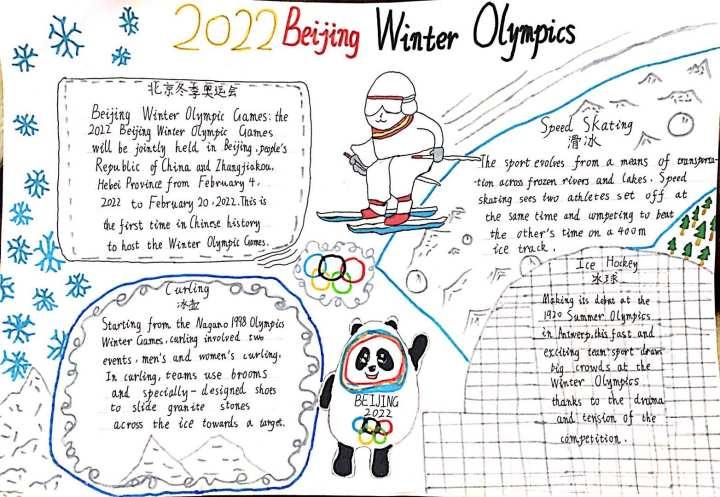 2022 Beijing Winter Olympics
北京冬季奥运会
Beijing Winter Olympic Games: the
2022 Beijing Winter Olympic Games
will be jointly held in Beijing, people's
Republic of China and Zhangjiakou,
Hebei Province from February 4.
2022 to February 20, 2022. This is
the first time in Chinese history
to host the Winter Olympic Games.
Speed Skating
滑冰
The sport evolves from a means of transporta
-tion across frozen rivers and lakes. Speed
skating sees two athletes set off at
the same time and competing to beat
the other's time on a 400m
ice track.
Curling
冰壶
Starting from the Nagano 1998 Olympics
Winter Games, curling involved two
events, men's and women's curling.
In curling, teams use brooms
and specially-designed shoes
to slide granite stones
across the ice towards a target.
BEIJING
2022
Ice Hockey
冰球
Making its debut at the
1920 Summer Olympics
in Antwerp, this fast and
exciting team sport draws
big crowds at the
Winter Olympics
thanks to the drama
and tension of the
competition.